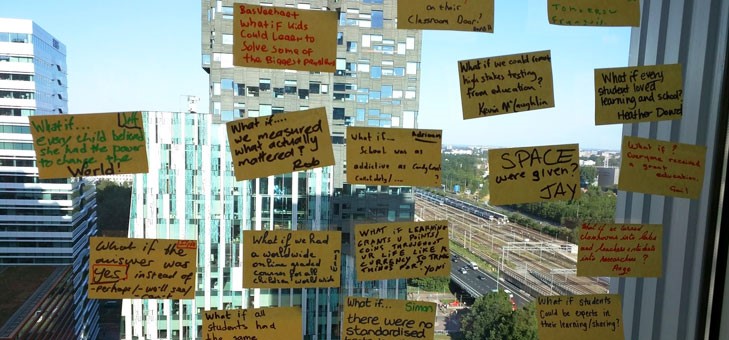 Bas Verhaest
What if kids
Could Learn to
Solve some of
the Biggest problems
on their
Classroom Door?
Tomorrow
What if we could
high stakes testing
from education?
Kevin McLaughlin
What if every
student loved
learning and school?
Heather
What if....
every child believed
she had the power
to change the
World!
What if....
we measured
what actually
mattered?
What if... Adrienne
School was as
addictive as Candy
Crush
SPACE
were given?
JAY
What if?
Everyone received
a great
education.
Gail
What if the
answer was
Yes! instead of
-perhaps/-we'll see/
What if we Had
a worldwide
online graded
course for all
children worldwide
WHAT IF LEARNING
GRANTS U POINTS/
COINS THROUGHOUT
UR LIFE LIKE A
CURRENCY TO TRADE
THINGS FOR?
What if we turned
classrooms into labs
and students
into researchers?
What if students
Could be experts in
their learning/sharing?
What if all
students had
the same
What if... Simon
there were no
standardised